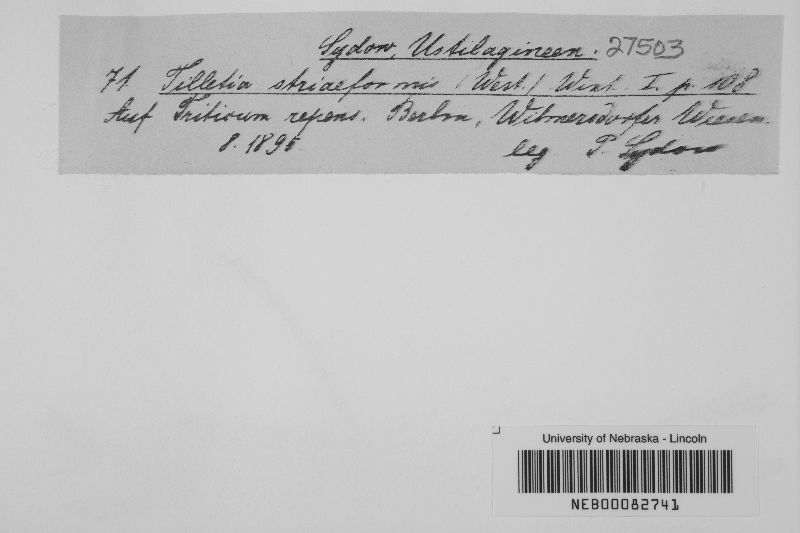 Sydow, Ustilagineen. 27503
71. Tilletia striaeformis (West.) Wint. I. p. 108
Auf Triticum repens. Berlin, Wilmersdorfer Wiesen.
8. 1895. leg. P. Sydow
University of Nebraska - Lincoln
NEB00082741